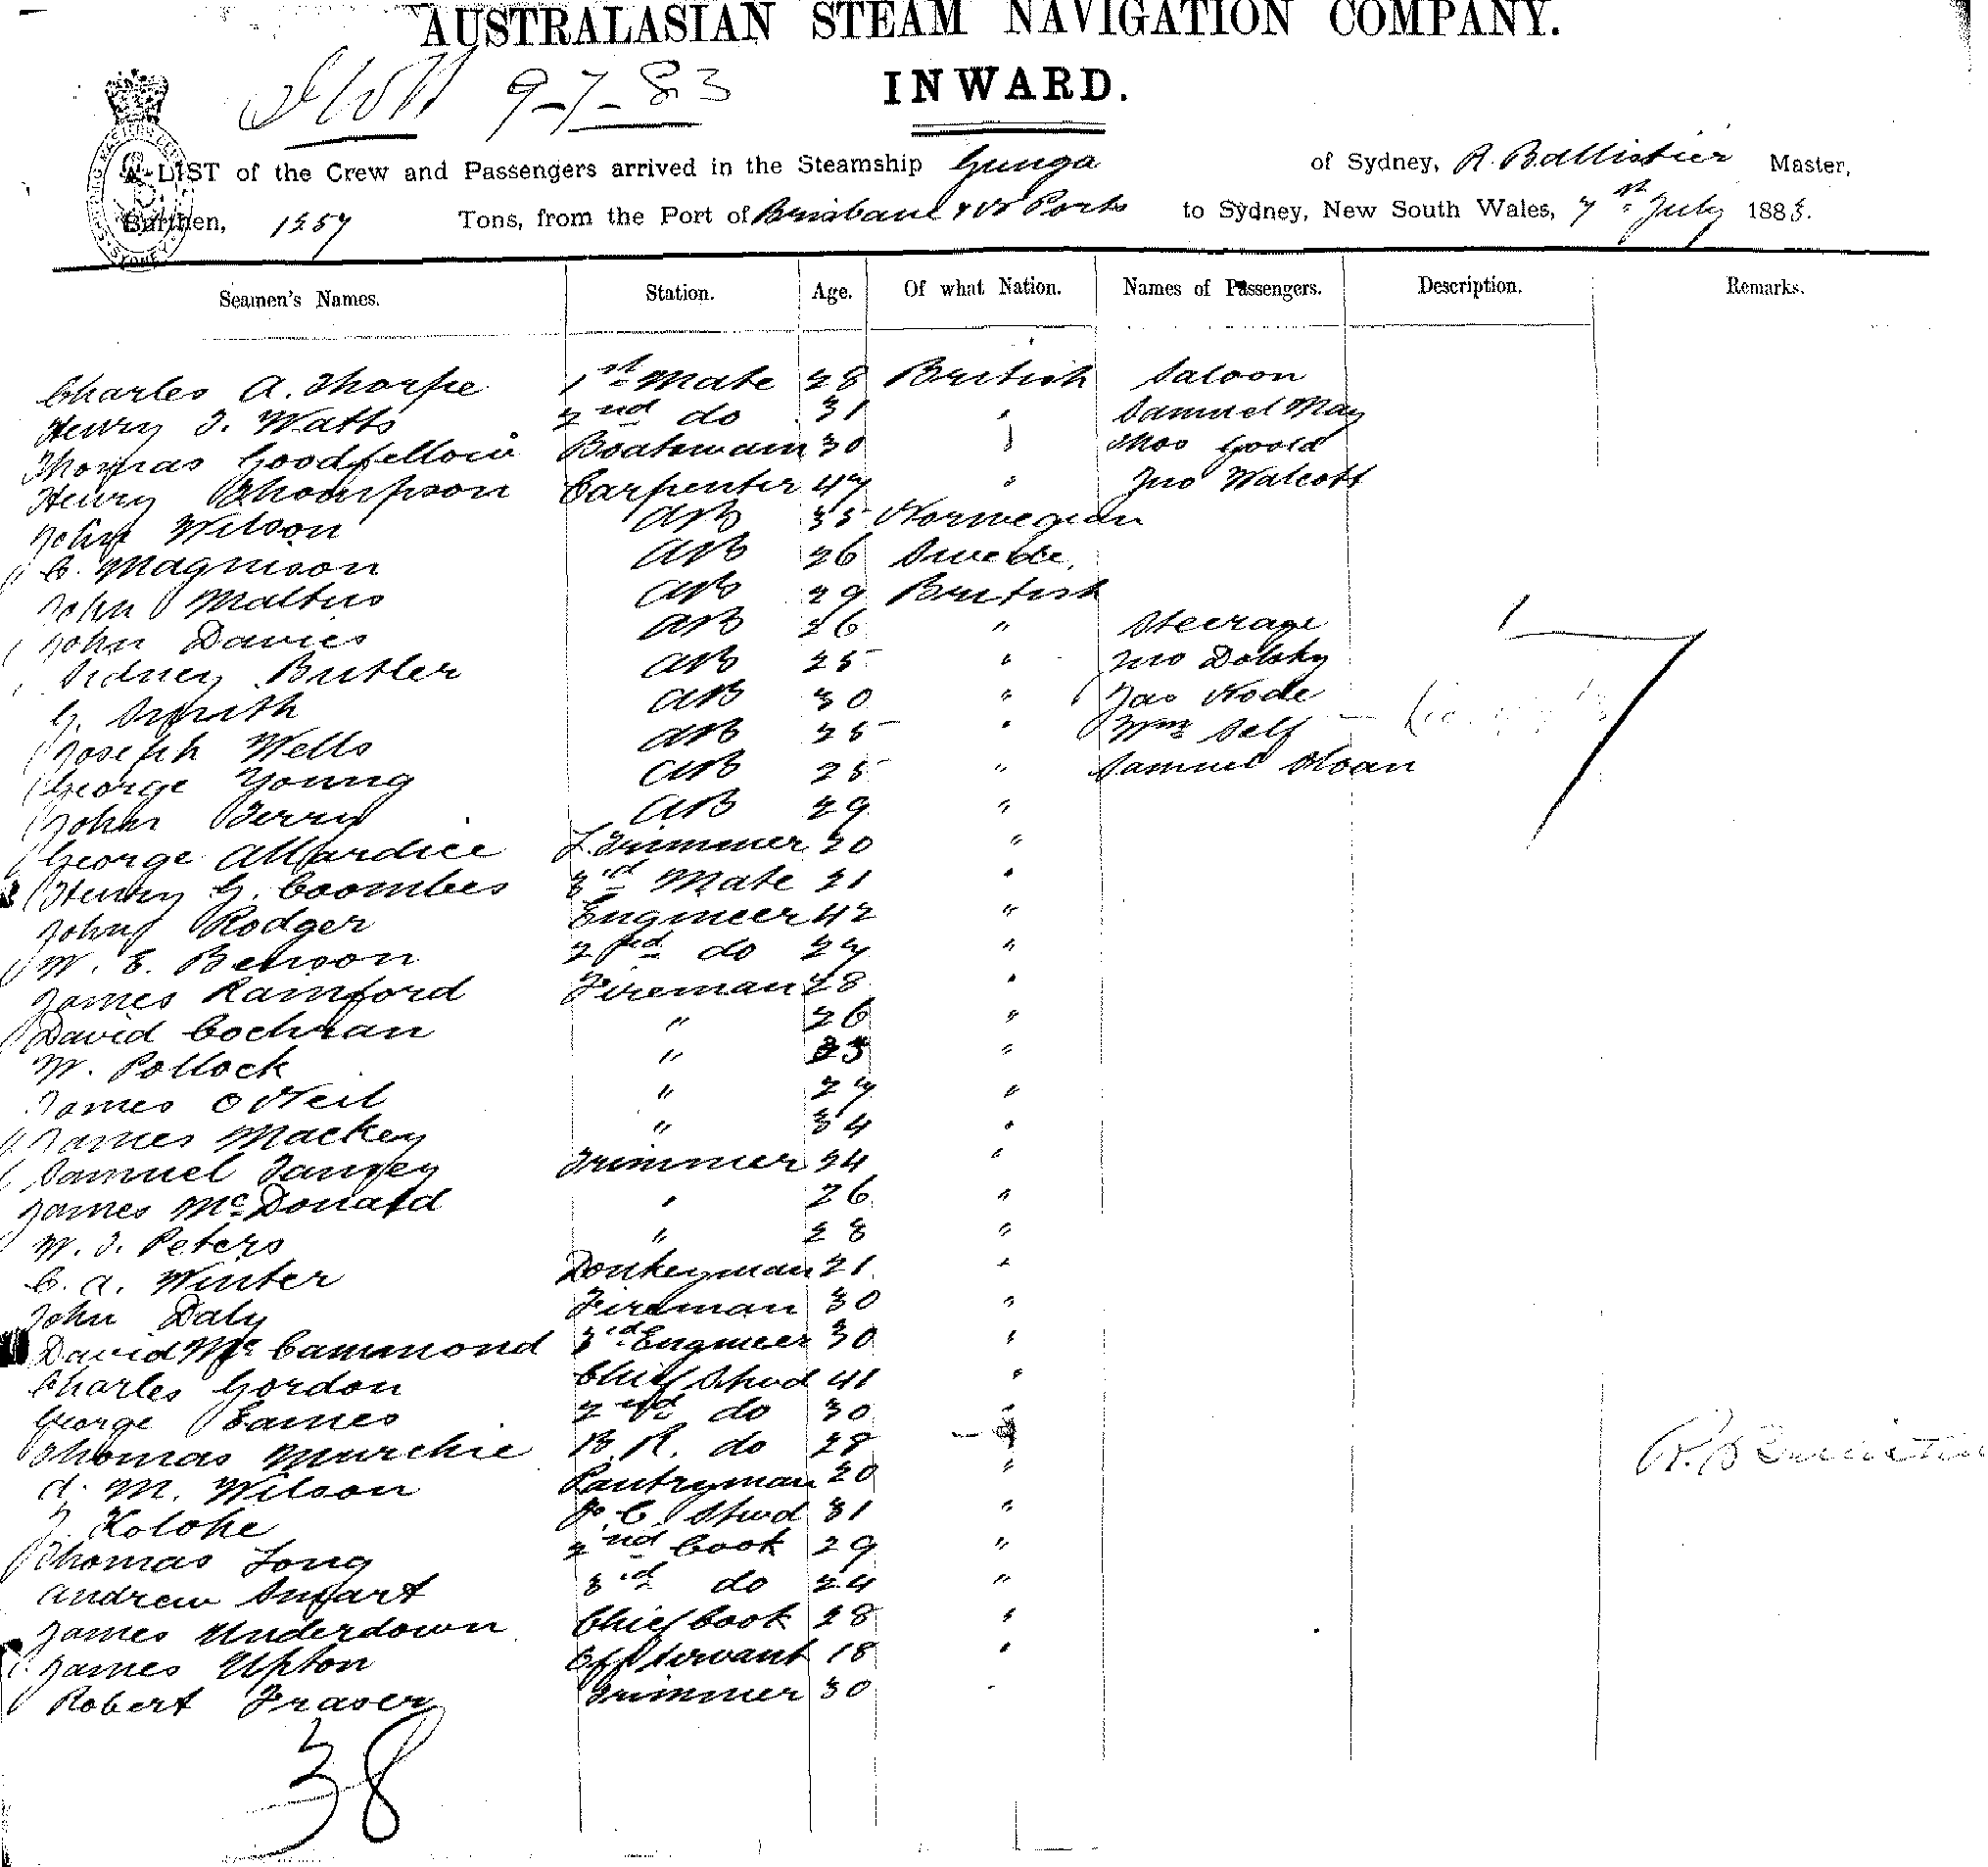 AUSTRALASIAN STEAM NAVIGATION COMPANY.
9-7-83 INWARD.
A LIST of the Crew and Passengers arrived in the Steamship Gunga of Sydney, R. Ballistier Master,
Burthen, 1257 Tons, from the Port of Brisbane & Ports to Sydney, New South Wales, 7th July 1883.
Seamen's Names. Station. Age. Of what Nation. Names of Passengers. Description. Remarks.
Charles A. Thorpe 1st Mate 28 British Saloon
Henry J. Watts 2nd do 31 " Samuel May
Thomas Goodfellow Boatswain 30 " Thos Goold
Henry Thompson Carpenter 47 " Jno Walcott
John Wilson AB 35 Norwegian
C. Magnison AB 26 Swede,
John Maltus AB 29 British
John Davies AB 26 " Steerage
Sidney Butler AB 25 " Jno Dolsky
G. Smith AB 30 " Jas Node
Joseph Wells AB 25 " Wm Self
George Young AB 25 " Samuel Sloan
John Terry AB 29 "
George Allardice L. Trimmer 20 "
Henry G. Coombes 3rd Mate 21 "
John Rodger Engineer 42 "
W. E. Benson 2nd do 27 "
James Ramford Fireman 28 "
David Cochran " 26 "
W. Pollock " 25 "
James O Neil " 27 "
James Mackey " 34 "
Samuel Tanfey Trimmer 24 "
James McDonald " 26 "
W. J. Peters " 28 "
C. A. Winter Donkeyman 21 "
John Daly Fireman 30 "
David McCammond 3rd Engineer 30 "
Charles Gordon Chief Stwd 41 "
George Eames 2nd do 30 "
Thomas Murchie B. R. do 28 "
A. M. Wilson Pantryman 20 "
J. Kolohe F. C. Stwd 31 "
Thomas Long 2nd Cook 29 "
Andrew Smart 3rd do 24 "
James Underdown Chief Cook 28 "
James Upton Off Servant 18 "
Robert Fraser Trimmer 30 "
7
38